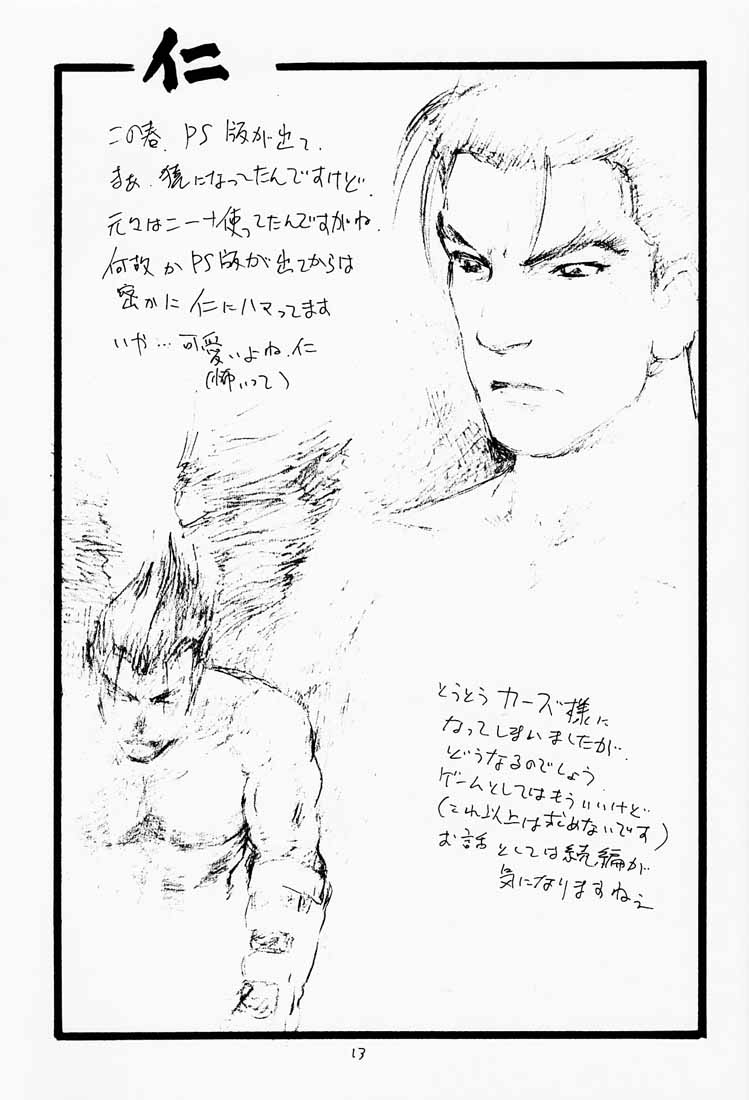 仁
この春、PS版が出て、
まあ、猿になってたんですけど、
元々はニーナ使ってたんですがね、
何故かPS版が出てからは
密かに仁にハマってます
いや…可愛いよね、仁
(怖いって)
とうとうカーズ様に
なってしまいましたが、
どうなるのでしょう
ゲームとしてはもういいけど
(これ以上は求めないです)
お話としては続編が
気になりますねえ
13